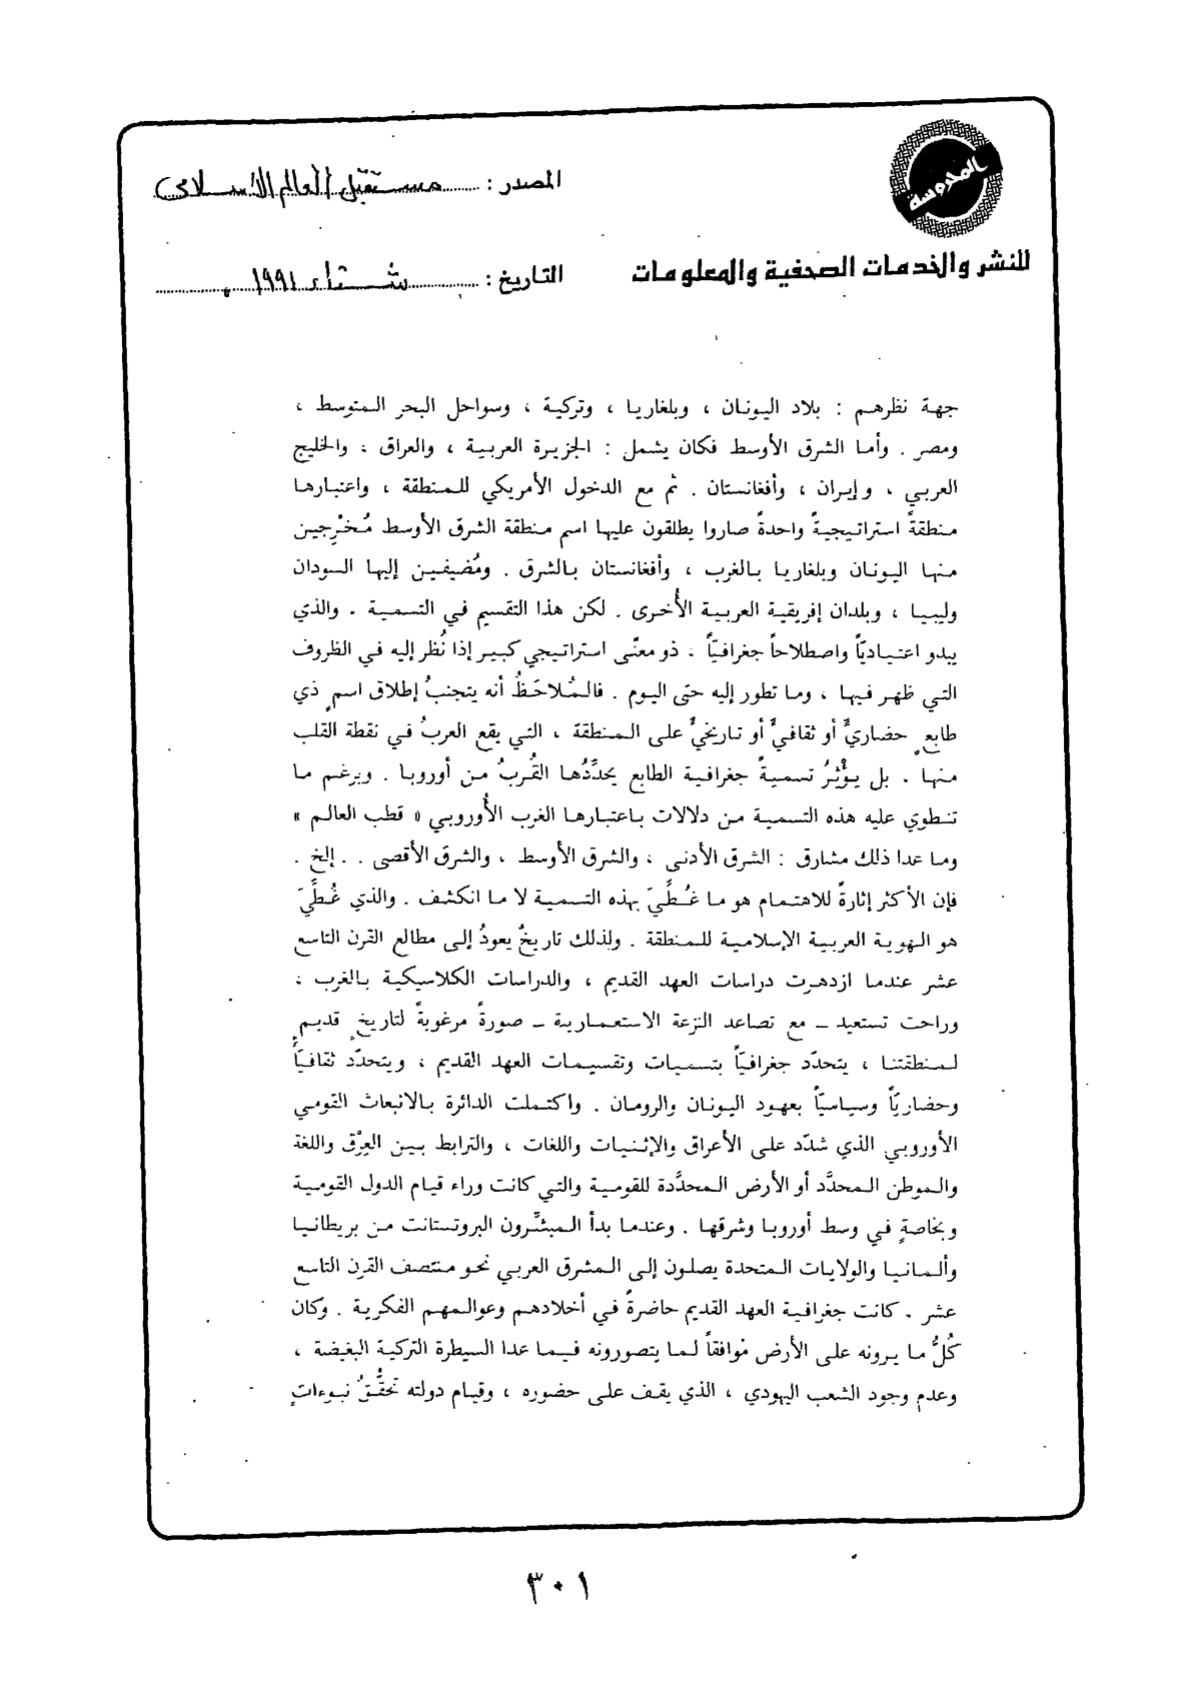 المحروسة
للنشر والخدمات الصحفية والمعلومات
المصدر : مستقبل العالم الإسلامى
التاريخ : شتاء ١٩٩١ م
جهة نظرهم : بلاد اليونان ، وبلغاريا ، وتركية ، وسواحل البحر المتوسط ،
ومصر . وأما الشرق الأوسط فكان يشمل : الجزيرة العربية ، والعراق ، والخليج
العربي ، وإيران ، وأفغانستان . ثم مع الدخول الأمريكي للمنطقة ، واعتبارها
منطقةً استراتيجيةً واحدةً صاروا يطلقون عليها اسم منطقة الشرق الأوسط مُخْرِجين
منها اليونان وبلغاريا بالغرب ، وأفغانستان بالشرق . ومُضيفين إليها السودان
وليبيا ، وبلدان إفريقية العربية الأُخرى . لكن هذا التقسيم في التسمية . والذي
يبدو اعتياديّاً واصطلاحاً جغرافيّاً ، ذو معنّى استراتيجي كبير إذا نُظر إليه في الظروف
التي ظهر فيها ، وما تطور إليه حتى اليوم . فالمُلاحَظُ أنه يتجنبُ إطلاق اسمٍ ذي
طابعٍ حضاريٍّ أو ثقافيٍّ أو تاريخيٍّ على المنطقة ، التي يقع العربُ في نقطة القلب
منها . بل يؤْثِرُ تسميةً جغرافية الطابع يحدِّدُها القُربُ من أوروبا . وبرغم ما
تنطوي عليه هذه التسمية من دلالات باعتبارها الغرب الأُوروبي « قطب العالم »
وما عدا ذلك مشارق : الشرق الأدنى ، والشرق الأوسط ، والشرق الأقصى . . إلخ .
فإن الأكثر إثارةً للاهتمام هو ما غُطِّيَ بهذه التسمية لا ما انكشف . والذي غُطِّيَ
هو الهوية العربية الإسلامية للمنطقة . ولذلك تاريخٌ يعودُ إلى مطالع القرن التاسع
عشر عندما ازدهرت دراسات العهد القديم ، والدراسات الكلاسيكية بالغرب ،
وراحت تستعيد ــ مع تصاعد النزعة الاستعمارية ــ صورةً مرغوبةً لتاريخٍ قديمٍ
لمنطقتنا ، يتحدّد جغرافيّاً بتسميات وتقسيمات العهد القديم ، ويتحدّد ثقافيّاً
وحضاريّاً وسياسيّاً بعهود اليونان والرومان . واكتملت الدائرة بالانبعاث القومي
الأوروبي الذي شدّد على الأعراق والإثنيات واللغات ، والترابط بين العِرْق واللغة
والموطن المحدَّد أو الأرض المحدَّدة للقومية والتي كانت وراء قيام الدول القومية
وبخاصةٍ في وسط أوروبا وشرقها . وعندما بدأ المبشِّرون البروتستانت من بريطانيا
وألمانيا والولايات المتحدة يصلون إلى المشرق العربي نحو منتصف القرن التاسع
عشر . كانت جغرافية العهد القديم حاضرةً في أخلادهم وعوالمهم الفكرية . وكان
كُلُّ ما يرونه على الأرض مُوافقاً لما يتصورونه فيما عدا السيطرة التركية البغيضة ،
وعدم وجود الشعب اليهودي ، الذي يقف على حضوره ، وقيام دولته تحقُّقُ نبوءاتٍ
٣٠١